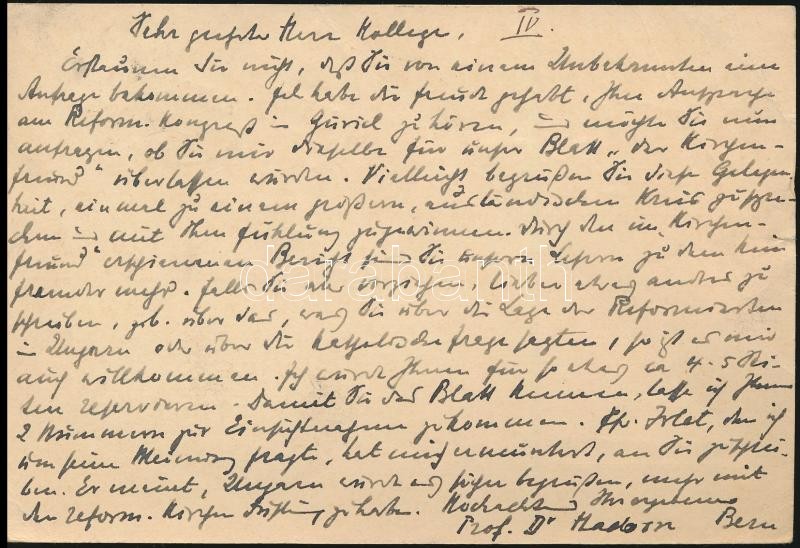 Sehr geehrter Herr Kollege, IV.
Erstaunen Sie nicht, daß Sie von einem Unbekannten eine
Anfrage bekommen. Ich habe die Freude gehabt, Ihre Ansprache
am Reform. Kongreß in Zürich zu hören, und möchte Sie nun
anfragen, ob Sie mir dieselbe für unser Blatt „der Kirchen-
freund" überlassen würden. Vielleicht begrüßen Sie diese Gelegen-
heit, einmal zu einem größern, ausländischen Kreis zu spre-
chen und mit Ihm Fühlung zu gewinnen. Durch den im „Kirchen-
freund" erschienenen Bericht sind Sie unsern Lesern zu dem kein
Fremder mehr. Falls Sie aber vorziehen, lieber etwas anderes zu
schreiben, z.b. über das, was Sie über die Lage der Reformierten
in Ungarn oder über die katholische Frage sagten, so ist es mir
auch willkommen. Ich würde Ihnen für so etwas ca 4-5 Sei-
ten reservieren. Damit Sie das Blatt kennen, lasse ich Ihnen
2 Nummern zur Einsichtnahme zukommen. Hr. den ich
um seine Meinung fragte, hat mich ermuntert, an Sie zu schrei-
ben. Er meint, Ungarn würde es sicher begrüßen, mehr mit
den reform. Kirchen Fühlung zu haben. Hochachtend Ihr ergebener
Prof. Dr Hadorn Bern
darabanth